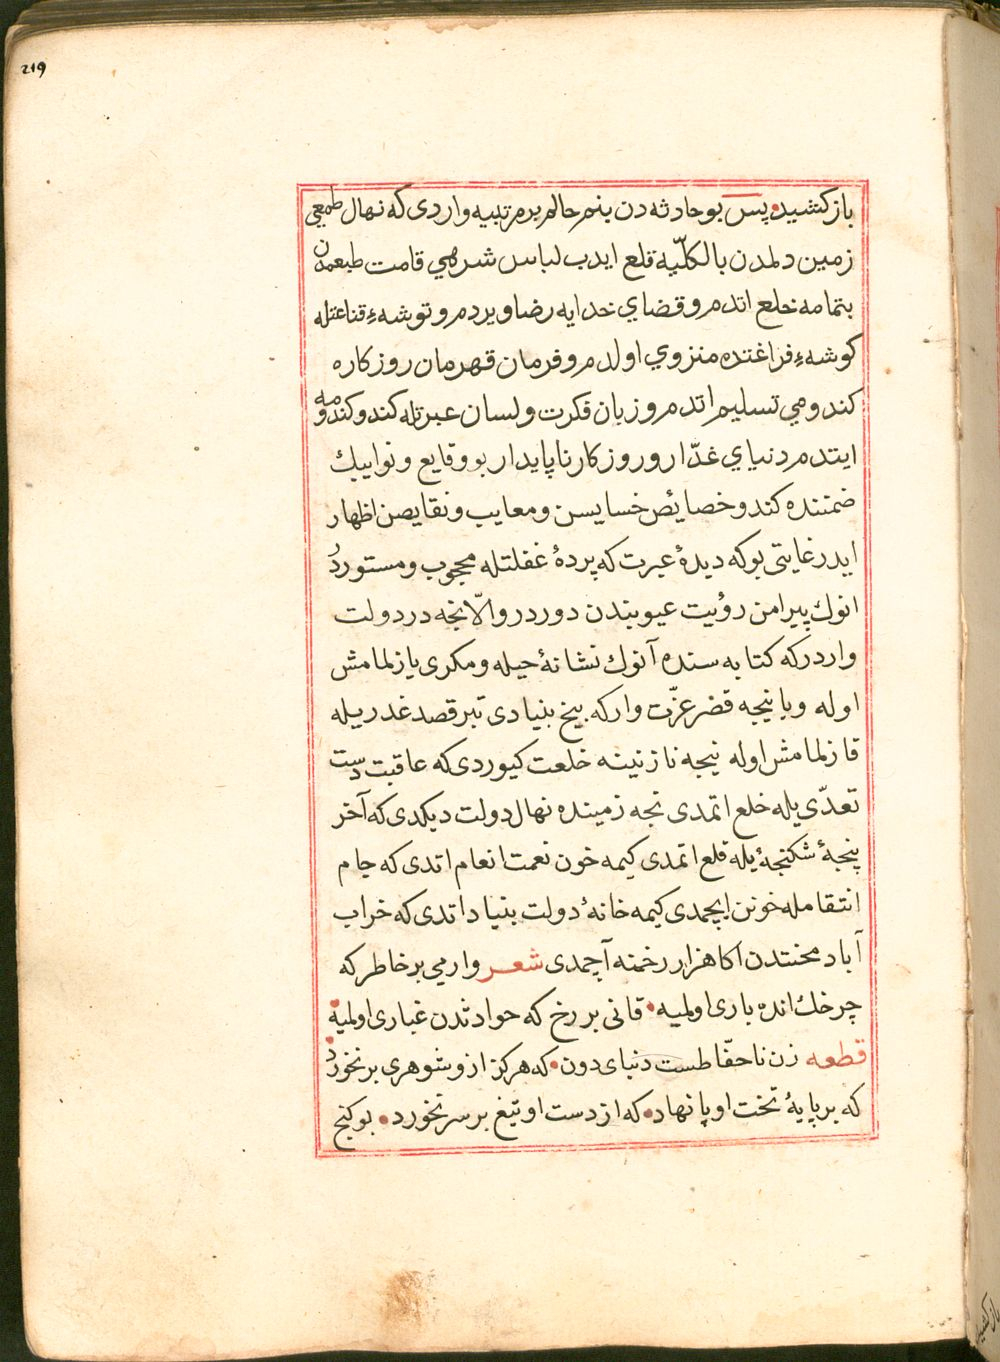 219
باز كشيده پس بو حادثه دن بنم حالم بر مرتبيه واردى كه نهال طمعى
زمين دلمدن بالكلّيه قلع ايدب لباس شرهى قامت طبعمدن
بتمامه خلع اتدم و قضاي خدايه رضا ويردم و توشهٔ قناعتله
كوشهٔ فراغتده منزوي اولدم و فرمان قهرمان روزكاره
كندومي تسليم اتدم و زبان فكرت و لسان عبرتله كندو كندومه
ايتدم دنياي غدّار و روزكار ناپايدار بو وقايع و نوايبك
ضمننده كندو خصائص خسايسن و معايب و نقايصن اظهار
ايدر غايتى بو كه ديدهٔ عبرت كه پردهٔ غفلتله محجوب و مستوردُر
انوك پيرامن رؤيت عيوبندن دوردر والّا نجه در دولت
واردر كه كتابه سنده آنوك نشانهٔ حيله و مكرى يازلمامش
اوله ويا نيجه قصر عزّت وار كه بيخ بنيادى تبر قصد غدريله
قازلمامش اوله نيجه نازنينه خلعت كيوردى كه عاقبت دست
تعدّى يله خلع اتمدى نجه زمينده نهال دولت ديكدى كه آخر
پنجهٔ شكنجهٔ يله قلع اتمدى كيمه خون نعمت انعام اتدى كه جام
انتقامله خونن ايچمدى كيمه خانهٔ دولت بنياد اتدى كه خراب
آباد محنتدن اكا هزار رخنه آچمدى شعر وارمي بر خاطر كه
چرخك انده بارى اولميه قانى بر رخ كه حوادثدن غبارى اولميه
قطعه زن ناحفّاظست دنياى دون كه هركز ازو شوهرى بر نخورد
كه بر پايهٔ تخت او پا نهاد كه از دست او تيغ بر سر نخورد بو كنج